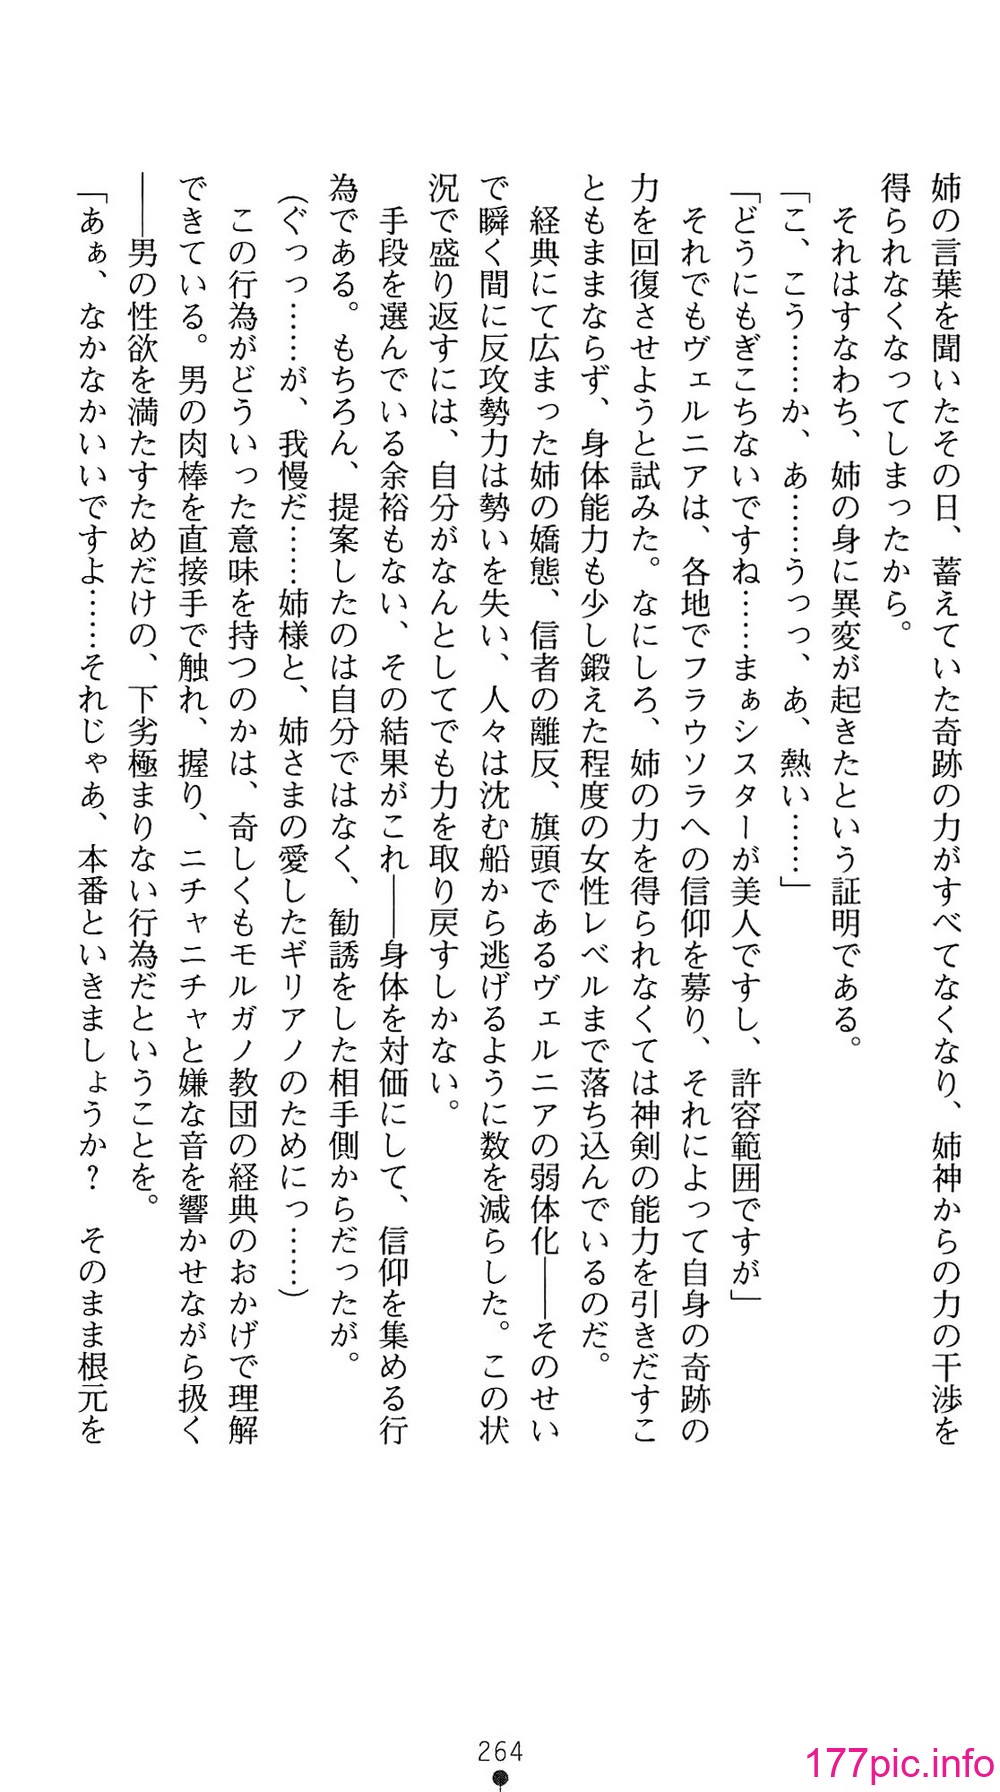 姉の言葉を聞いたその日、蓄えていた奇跡の力がすべてなくなり、姉神からの力の干渉を
得られなくなってしまったから。
　それはすなわち、姉の身に異変が起きたという証明である。
「こ、こう……か、あ……うっっ、あ、熱い……」
「どうにもぎこちないですね……まぁシスターが美人ですし、許容範囲ですが」
　それでもヴェルニアは、各地でフラウソラへの信仰を募り、それによって自身の奇跡の
力を回復させようと試みた。なにしろ、姉の力を得られなくては神剣の能力を引きだすこ
ともままならず、身体能力も少し鍛えた程度の女性レベルまで落ち込んでいるのだ。
　経典にて広まった姉の嬌態、信者の離反、旗頭であるヴェルニアの弱体化――そのせい
で瞬く間に反攻勢力は勢いを失い、人々は沈む船から逃げるように数を減らした。この状
況で盛り返すには、自分がなんとしてでも力を取り戻すしかない。
　手段を選んでいる余裕もない、その結果がこれ――身体を対価にして、信仰を集める行
為である。もちろん、提案したのは自分ではなく、勧誘をした相手側からだったが。
（ぐっっ……が、我慢だ……姉様と、姉さまの愛したギリアノのためにっ……）
　この行為がどういった意味を持つのかは、奇しくもモルガノ教団の経典のおかげで理解
できている。男の肉棒を直接手で触れ、握り、ニチャニチャと嫌な音を響かせながら扱く
――男の性欲を満たすためだけの、下劣極まりない行為だということを。
「あぁ、なかなかいいですよ……それじゃあ、本番といきましょうか？　そのまま根元を
264
177pic.info